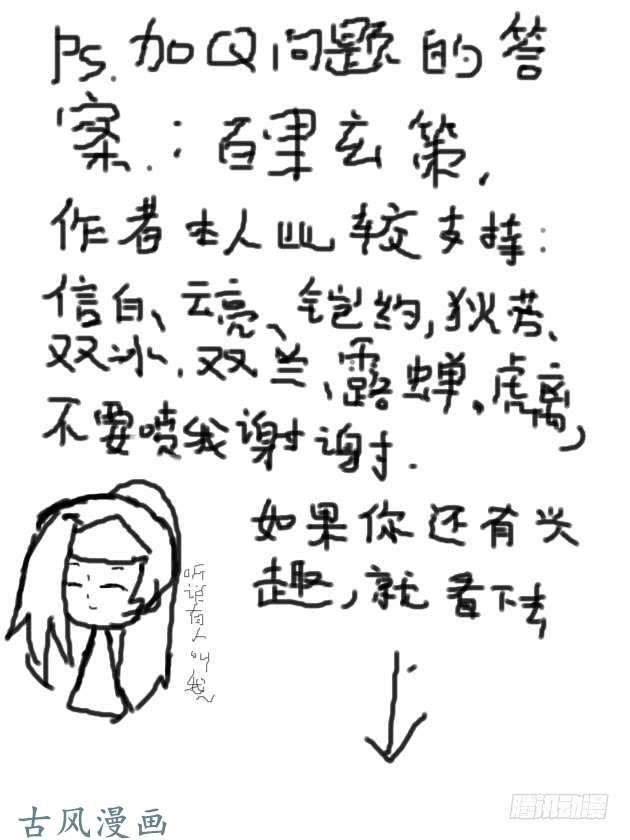 Ps.加Q问题的答
案.:百里玄策,
作者本人比较支持:
信白、云亮、铠约,狄芳、
双冰、双兰、露蝉、虎离,
不要喷我谢谢.
如果你还有兴
趣,就看下去
听说有人叫我~
古风漫画
腾讯动漫